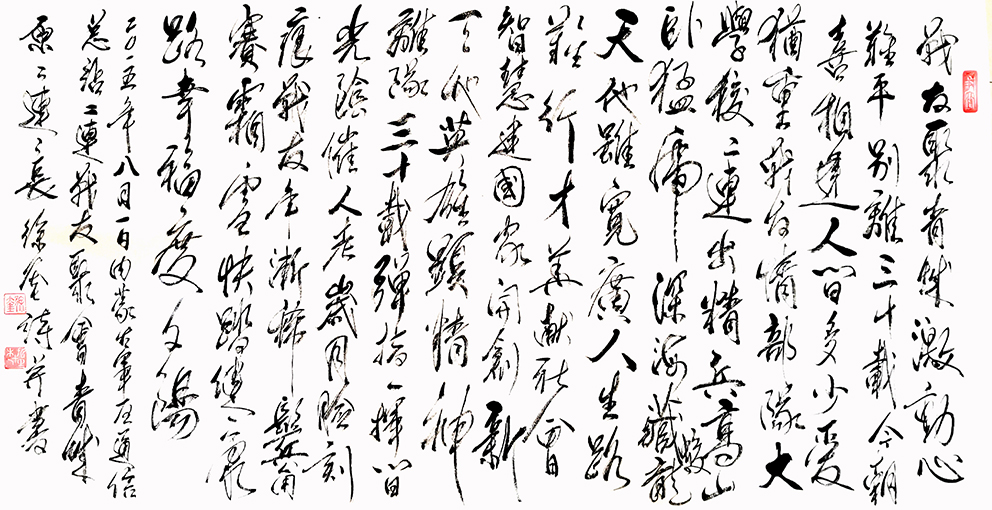 战友聚青城激動心
難平别離三十載今朝
喜相逢人間多少愛
猶重戰友情部隊大
學校二連出精兵高山
卧猛虎深海藏蛟龍
天地雖寬廣人生路
難行才華献社會
智慧建國家開創新
英雄顯精神
離隊三十載彈指一揮間
光陰催人老歲月臉刻
痕戰友年漸稀鬓角
賽霜雪快踏
路幸福度夕陽
二〇一五年八月一日内蒙古軍区通信
总站二連战友聚會青城
原二連連長徐奎詩并書